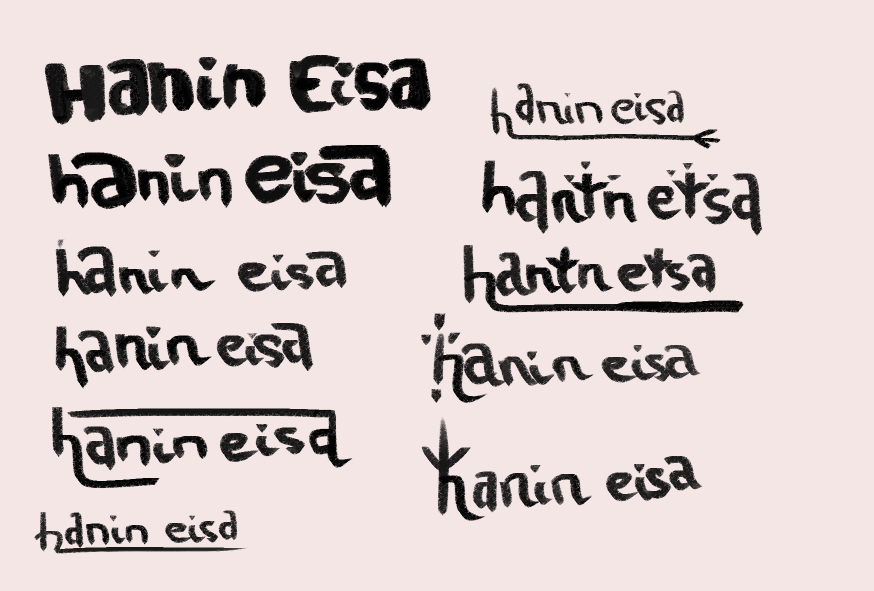 Hanin Eisa
hanin eisa
hanin eisa
hanin eisa
hanin eisa
hanin eisa
hanin eisa
hanin eisa
hanin eisa
hanin eisa
hanin eisa